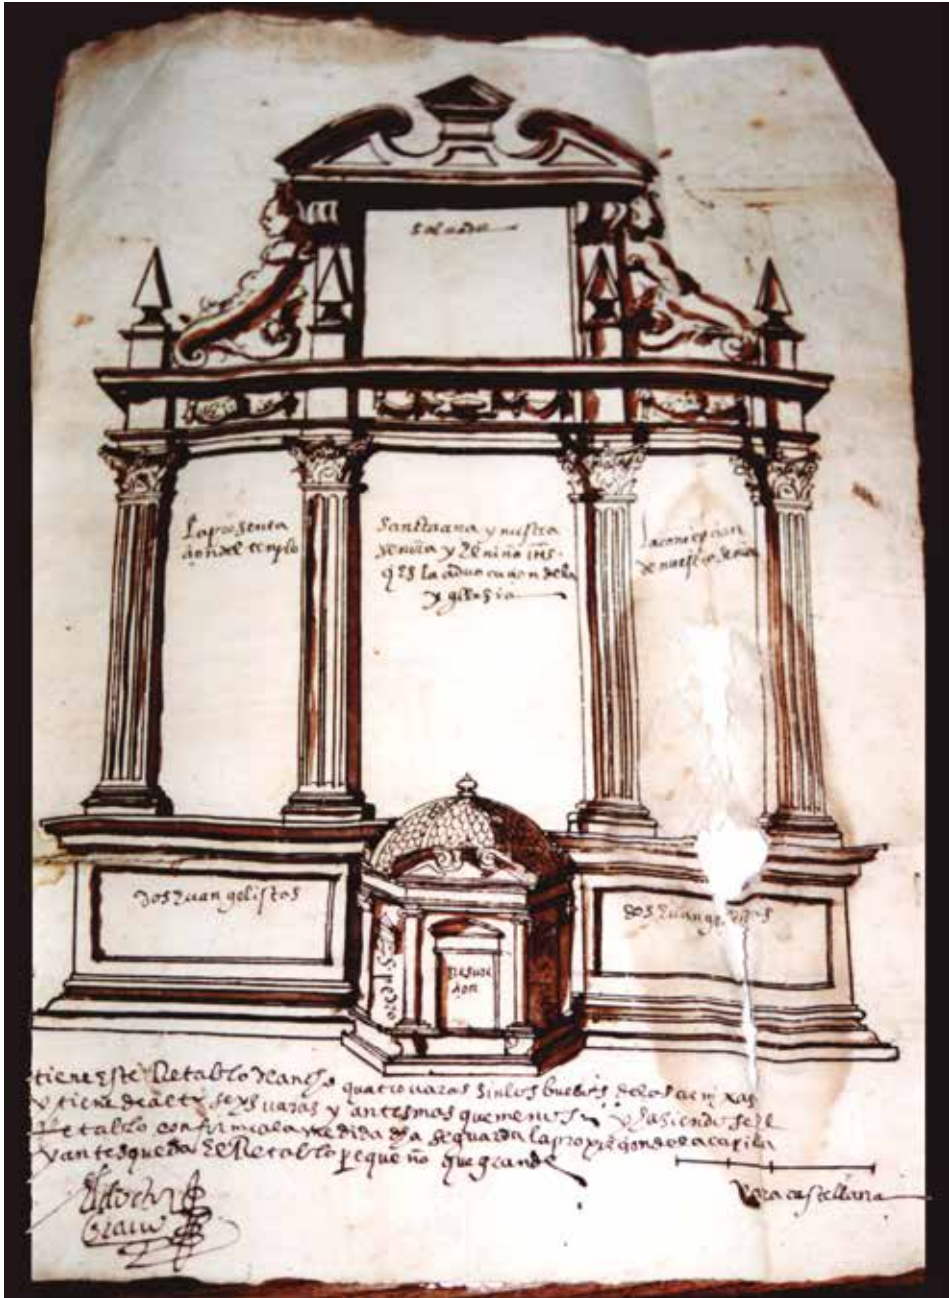 Salvador
la presenta
çion del templo
Sancta ana y nuestra
señora y el niño ihs.
q es la aduocaçion dela
yglesia
la concepçion
de nuestra señora
dos euangelistas
dos euangelistas
S. pedro
Resure
çion
tiene este Retablo de ancho quatro uaras sin los buelos delas cornixas
y tiene de alto seys uaras y antes mas que menos y haziendose el
Retablo conforme a la medida dha se guarda la proporçion de la capilla
y antes queda el Retablo pequeño que grande
Vara castellana